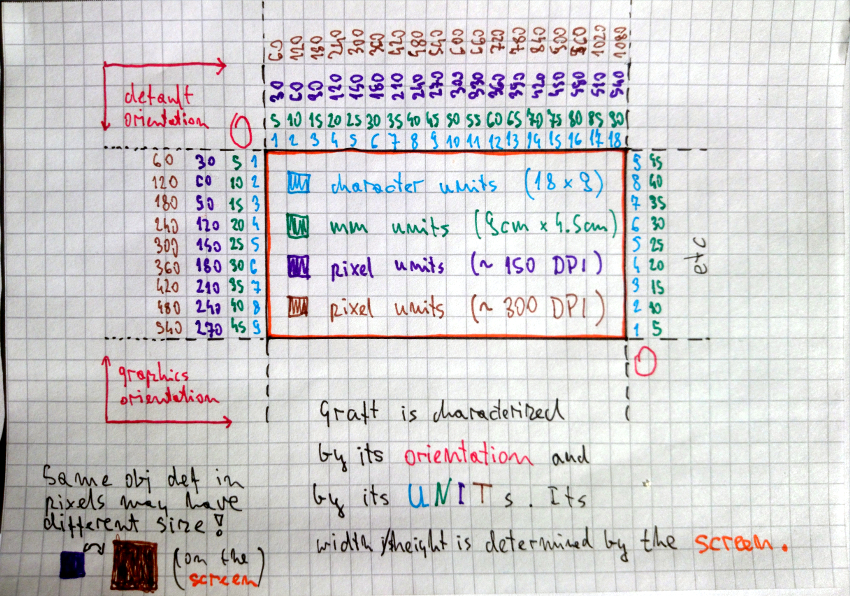 60 120 180 240 300 360 420 480 540 600 660 720 780 840 900 960 1020 1080
30 60 90 120 150 180 210 240 270 300 330 360 390 420 450 480 510 540
5 10 15 20 25 30 35 40 45 50 55 60 65 70 75 80 85 90
1 2 3 4 5 6 7 8 9 10 11 12 13 14 15 16 17 18
default
orientation
0
60 30 5 1
120 60 10 2
180 90 15 3
240 120 20 4
300 150 25 5
360 180 30 6
420 210 35 7
480 240 40 8
540 270 45 9
character units (18 x 9)
mm units (9cm x 4.5cm)
pixel units (~ 150 DPI)
pixel units (~ 300 DPI)
9 45
8 40
7 35
6 30
5 25
4 20
3 15
2 10
1 5
etc
0
graphics
orientation
Graft is characterized
by its orientation and
by its UNITs. Its
width/height is determined by the screen.
Same obj def in
pixels may have
different size!
(on the
screen)